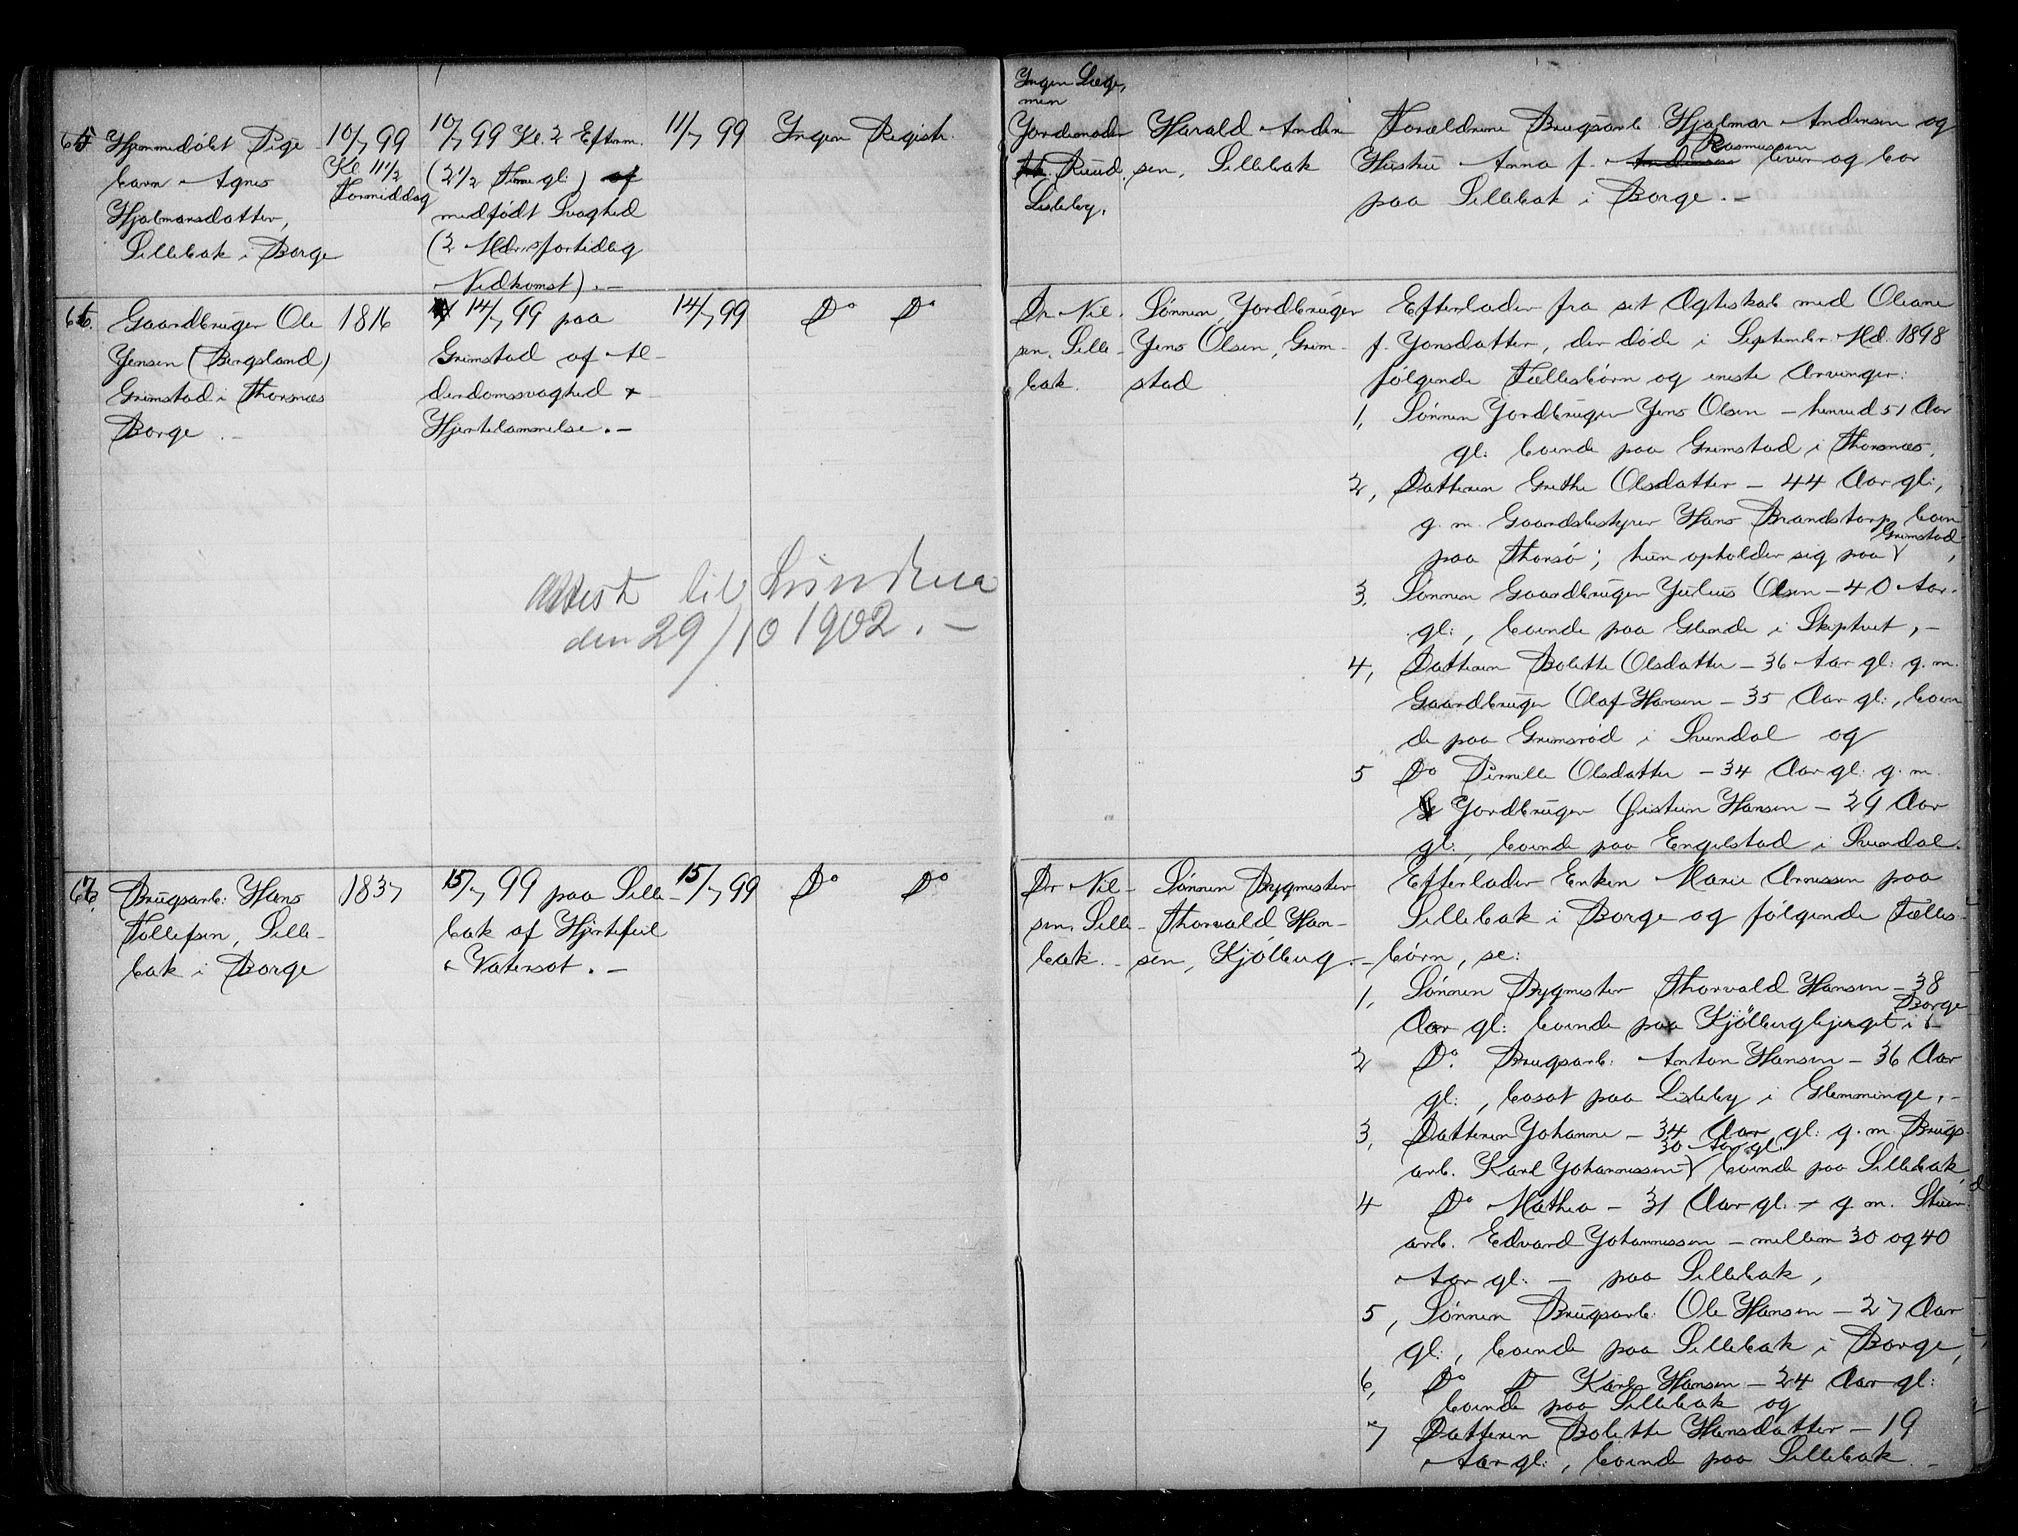 65 Hjemmedøbt Pige
barn Agnes
Hjalmarsdatter,
Lillebak i Borge
10/7 99
Kl 11 1/2
Formiddag
10/7 99 Kl. 2 Efterm.
(2 1/2 Time gl.) af
medfødt Svaghed
(2 Mdrs fortidlig
Nedkomst). —
11/7 99
Ingen Registr.
Ingen Læge,
men
Jordemoder
Ruud.
Lisleby.
Harald Ander
sen, Lillebak
Forældrene Brugsarb. Hjalmar Andersen og
Rasmussen
Hustru Anna f. Andersen lever og bor
paa Lillebak i Borge. —
66. Gaardbruger Ole
Jensen (Bergsland)
Grimstad i Thorsnæs
Borge. —
1816
14/7 99 paa
Grimstad af Al-
derdomssvaghed &
Hjertelammelse. —
14/7 99
Do Do
Attest til
den 29/10 1902. —
Dr. Niel-
sen. Lille-
bak.
Sønnen, Jordbruger
Jens Olsen, Grim-
stad
Efterlader fra sit Ægteskab med Oliane
f. Jonsdatter, der døde i September Md. 1898
følgende Fællesbørn og eneste Arvinger:
1, Sønnen Jordbruger Jens Olsen — henved 51 Aar
gl: boende paa Grimstad i Thorsnæs,
2, Datteren Grethe Olsdatter — 44 Aar gl:,
g. m. Gaardsbestyrer Hans Brandstorp, boen
Grimstad
paa Thorsø; hun opholder sig paa ,
3. Sønnen Gaardbruger Julius Olsen — 40 Aar
gl:, boende paa Glende i Skiptvet, —
4, Datteren Bolette Olsdatter — 36 Aar gl: g. m.
Gaardbruger Olaf Hansen — 35 Aar gl:, boen
de paa Grimsrød i Svendal og
5 Do Pernille Olsdatter — 34 Aar gl: g. m.
Jordbruger Christian Hansen — 29 Aar
gl:, boende paa Engelstad i Svendal.
67. Brugsarb: Hans
Tollefsen, Lille-
bak i Borge
1837
15/7 99 paa Lille-
bak af Hjertefeil
& Vatersot. —
15/7 99
Do Do
Dr Niel-
sen. Lille-
bak. —
Sønnen Bygmester
Thorvald Han-
sen, Kjølberg. —
Efterlader Enken Marie Arnessen paa
Lillebak i Borge og følgende Fælles-
børn, se:
1, Sønnen Bygmester Thorvald Hansen — 38
Borge
Aar gl: boende paa Kjølbergbjerget i
2 Do. Brugsarb: Anton Hansen — 36 Aar
gl:, bosat paa Lisleby i Glemminge, —
3, Datteren Johanne — 34 Aar gl: g. m. Brugs-
30 Aar gl.
arb. Karl Johannessen boende paa Lillebak,
4 Do Mathea — 31 Aar gl. — g. m. Stuer-
arb. Edvard Johannessen — mellem 30 og 40
Aar gl: — paa Lillebak,
5, Sønnen Brugsarb: Ole Hansen — 27 Aar
gl:, boende paa Lillebak i Borge,
6, Do Do Karl Hansen — 24 Aar gl:
boende paa Lillebak og
7 Datteren Bolette Hansdatter — 19
Aar gl:, boende paa Lillebak. —